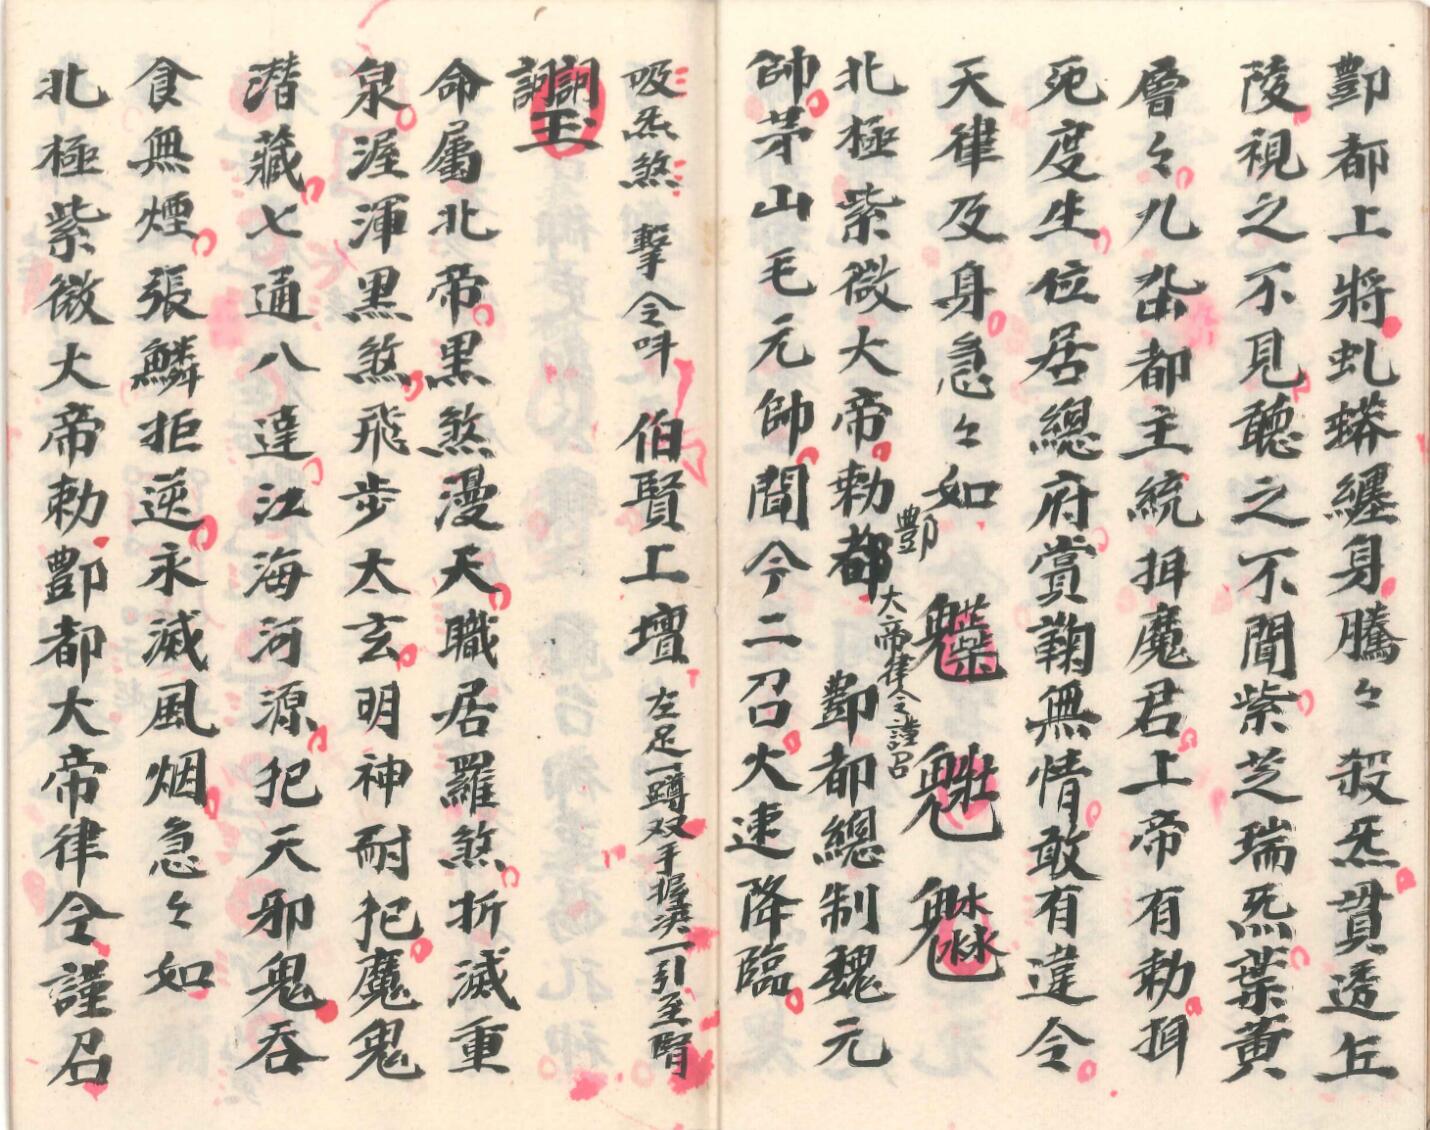 酆都上將虬蟒纏身騰々殺炁貫透丘
陵視之不見聽之不聞紫芝瑞炁葉黄
層々九壘都主統揖魔君上帝有勅揖
死度生位居總府賞鞠無情敢有違令
天律及身急々如
北極紫微大帝勅酆都大帝律令謹召
酆都總制魏元
帥茅山毛元帥聞今二召火速降臨
吸炁煞 擊令呌 伯賢上壇 左足一蹲双手握淚一引至腎
命屬北帝黒煞漫天職居羅煞折滅重
泉渥渾黒煞飛步太玄明神耐犯魔鬼
潛藏七通八達江海河源犯天邪鬼吞
食無煙張鱗拒逆永滅風烟急々如
北極紫微大帝勅酆都大帝律令謹召